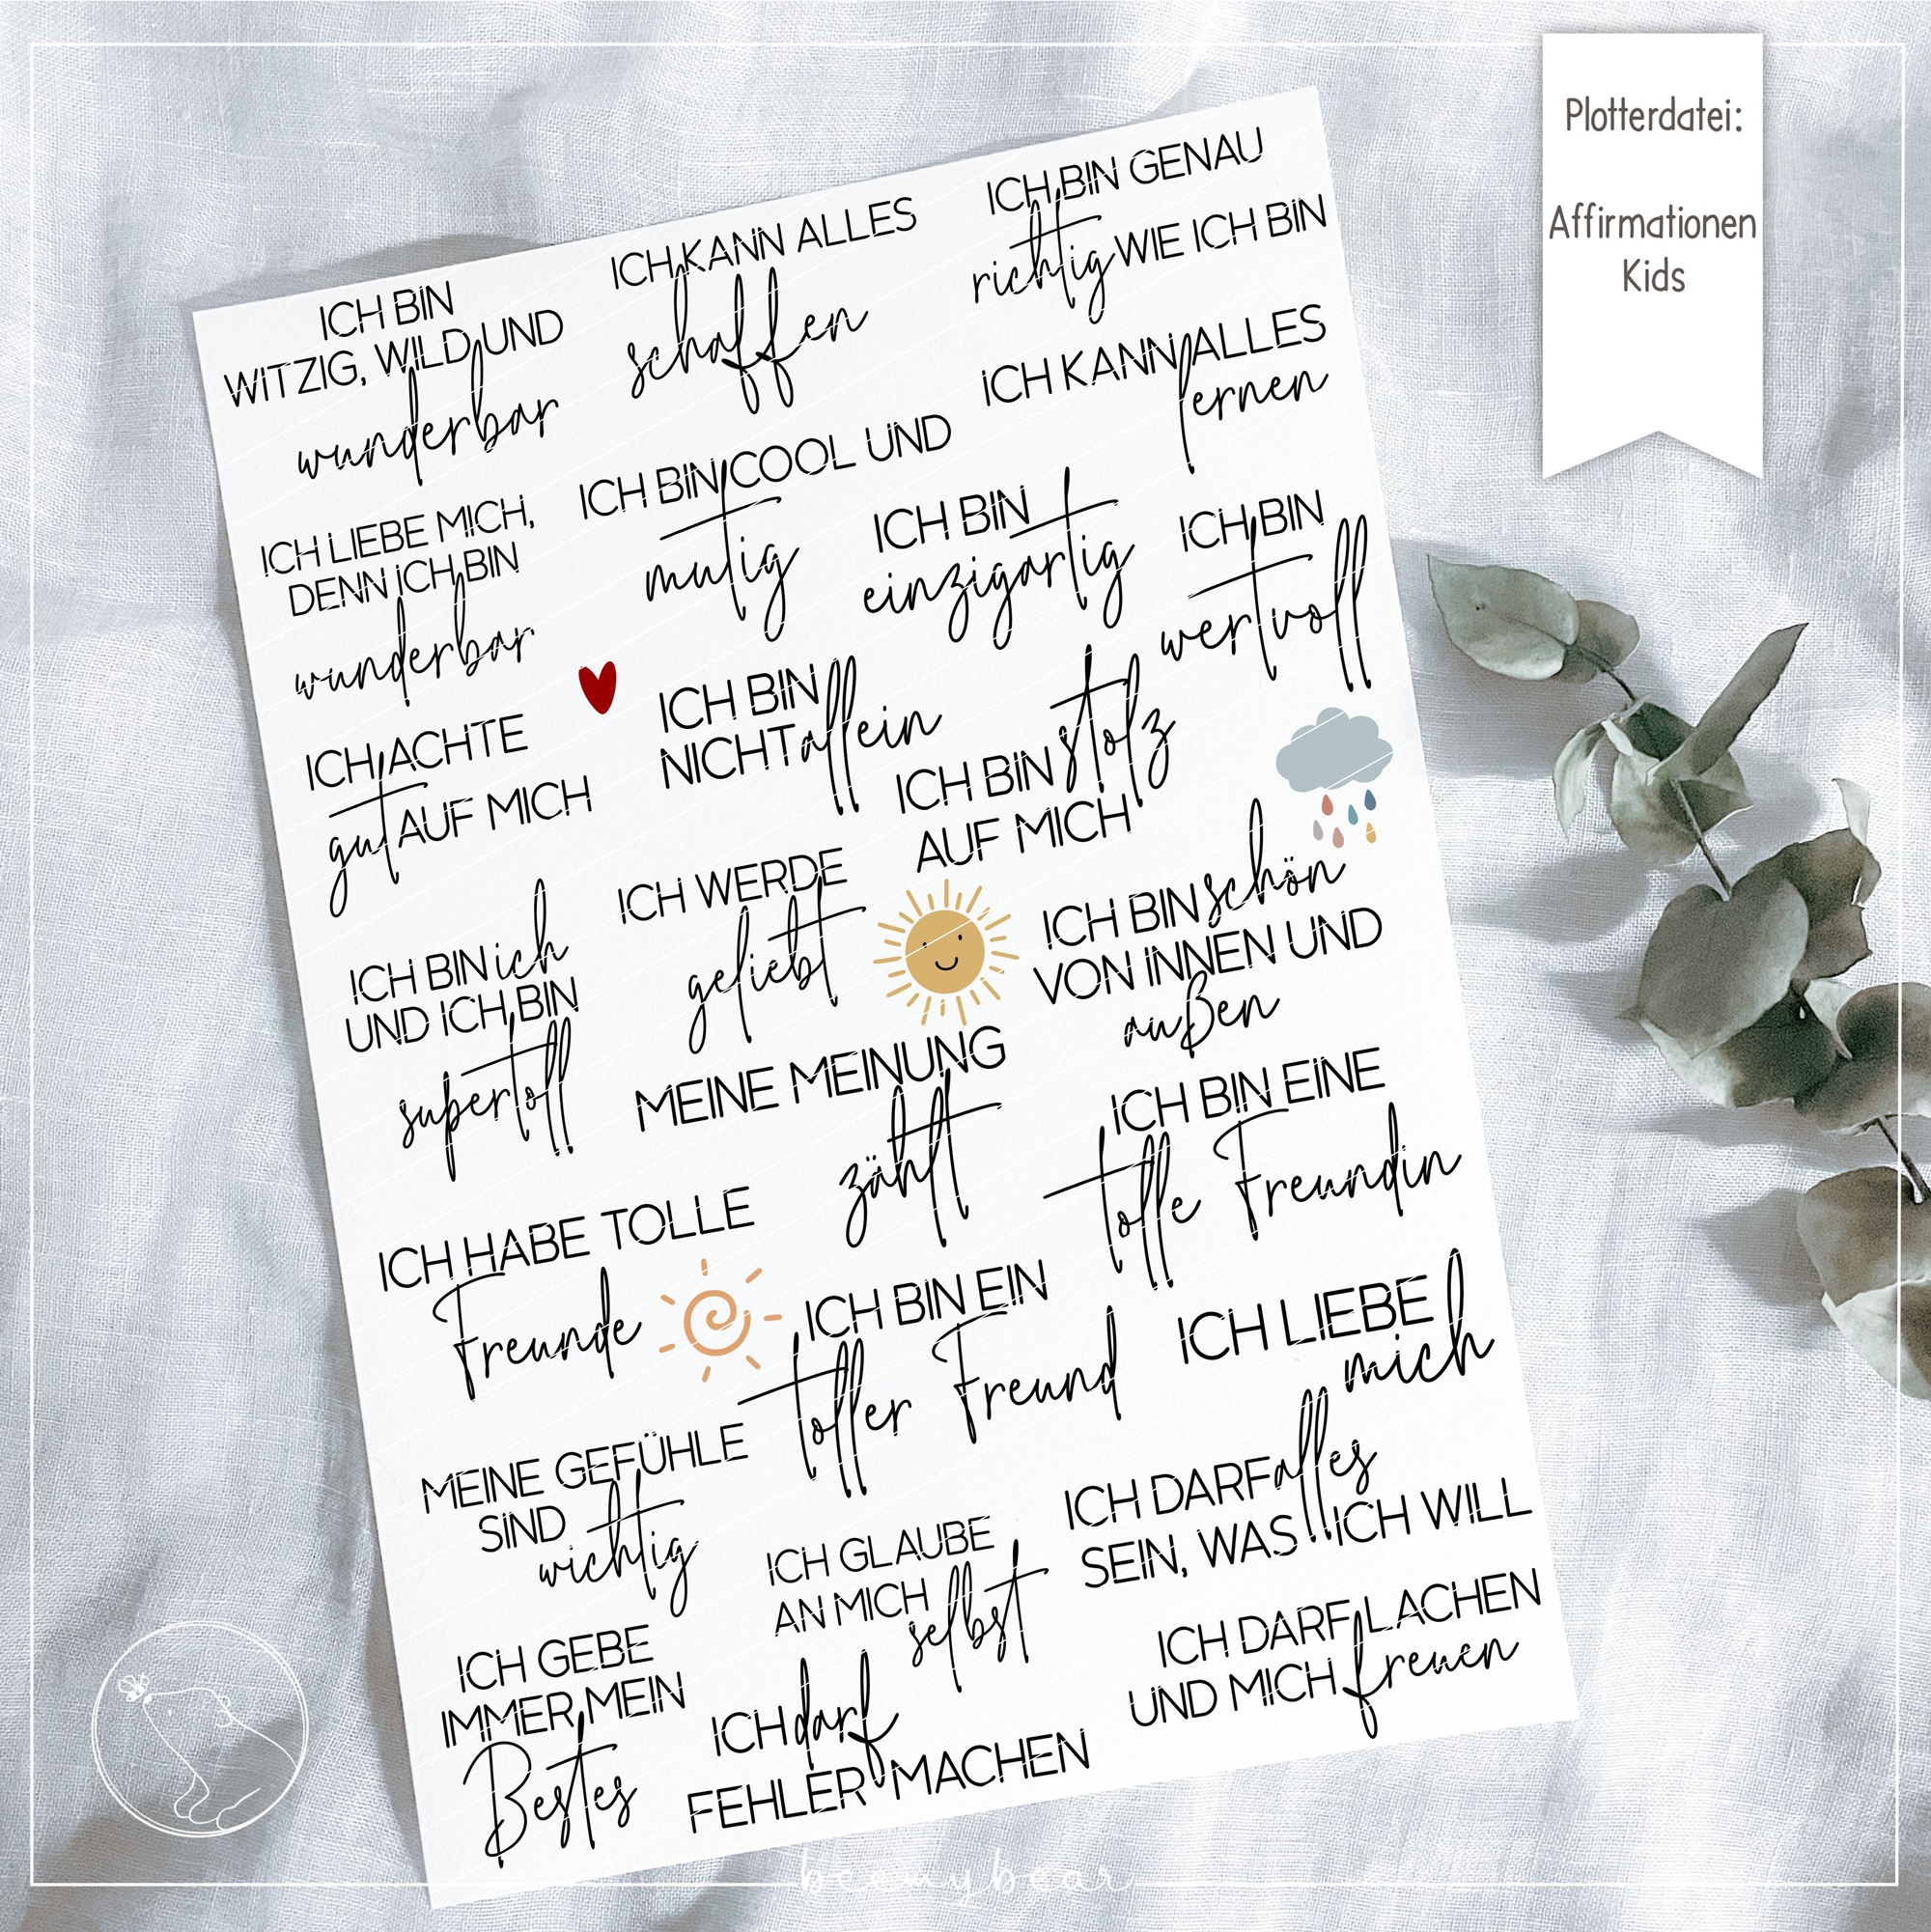 Plotterdatei:
Affirmationen
Kids
ICH BIN
WITZIG, WILD UND
wunderbar
ICH KANN ALLES
schaffen
ICH BIN GENAU
richtig WIE ICH BIN
ICH KANN ALLES
lernen
ICH LIEBE MICH,
DENN ICH BIN
wunderbar
ICH BIN COOL UND
mutig
ICH BIN
einzigartig
ICH BIN
wertvoll
ICH ACHTE
gut AUF MICH
ICH BIN
NICHT allein
ICH BIN stolz
AUF MICH
ICH BIN ich
UND ICH BIN
supertoll
ICH WERDE
geliebt
ICH BIN schön
VON INNEN UND
außen
MEINE MEINUNG
zählt
ICH BIN EINE
tolle Freundin
ICH HABE TOLLE
Freunde
ICH BIN EIN
toller Freund
ICH LIEBE
mich
MEINE GEFÜHLE
SIND
wichtig
ICH GLAUBE
AN MICH selbst
ICH DARF alles
SEIN, WAS ICH WILL
ICH GEBE
IMMER MEIN
Bestes
ICH darf
FEHLER MACHEN
ICH DARF LACHEN
UND MICH freuen
beemybear